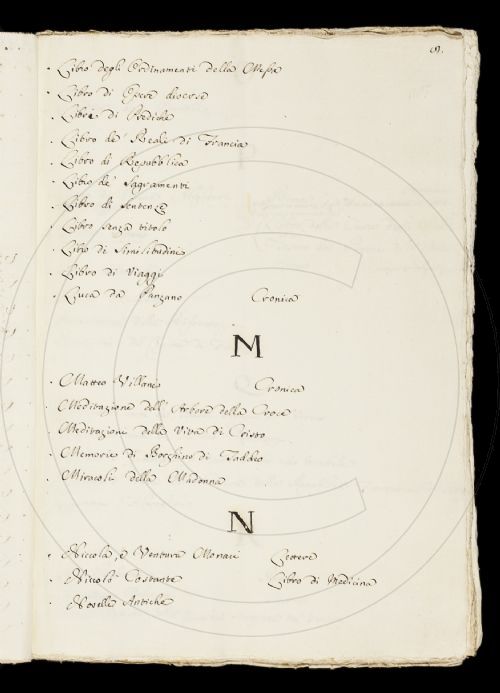 Libro degli Ordinamenti della Messa
Libro di Opere diverse
Libri di Prediche
Libro de' Reali di Francia
Libro di Repubblica
Libro de' Sagramenti
Libro di Sentenze
Libro senza titolo
Libro di Similitudini
Libro di Viaggi
Luca da Panzano Cronica
M
Matteo Villani Cronica
Meditazione dell' Arbore della Croce
Meditazione della Vita di Cristo
Memorie di Borghino di Taddeo
Miracoli della Madonna
N
Niccola, e Ventura Monaci Lettere
Niccolò Costante Libro di Medicina
Novelle Antiche